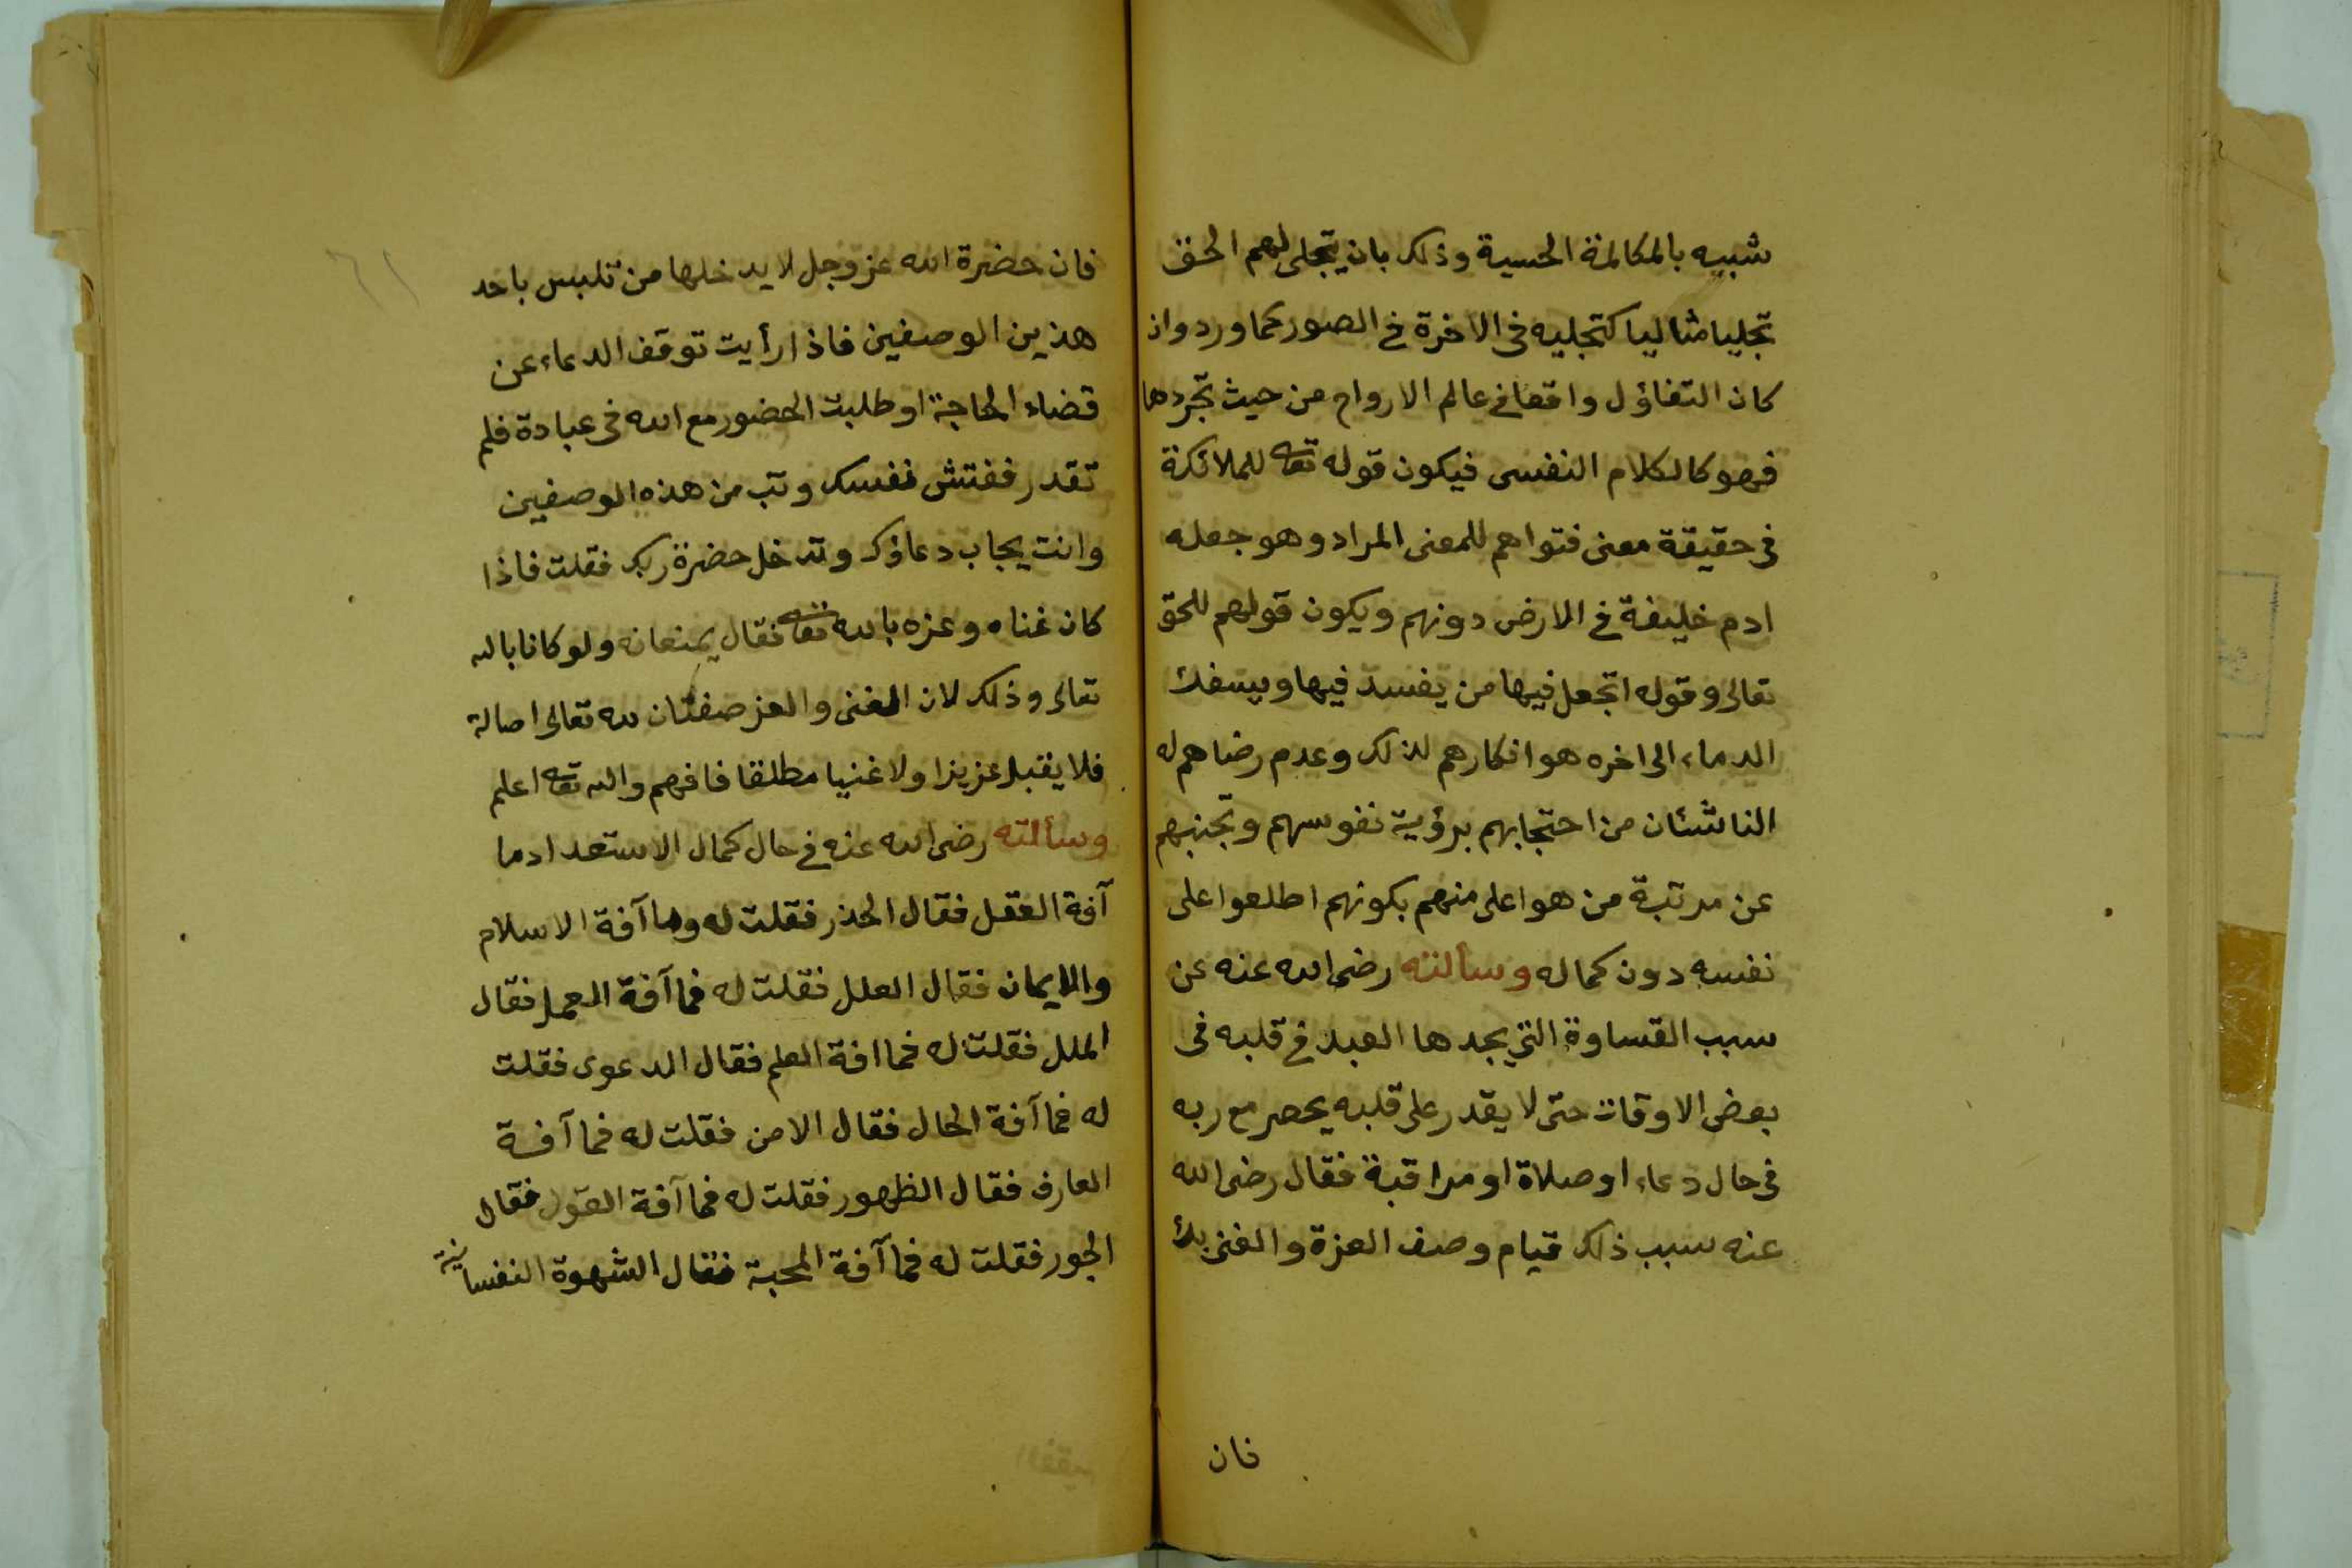 شبيه بالمكالمة الحسية وذلك بان يتجلى لهم الحق
تجليا مثاليا كتجليه فى الاخرة فى الصور كما ورد وان
كان التفاؤل واقعا فى عالم الارواح من حيث تجردها
فهو كالكلام النفسى فيكون قوله تعالى للملائكة
فى حقيقة معنى فتواهم للمعنى المراد وهو جعله
ادم خليفة فى الارض دونهم ويكون قولهم للحق
تعالى وقوله اتجعل فيها من يفسد فيها ويسفك
الدماء الى اخره هو انكارهم لذلك وعدم رضاهم له
الناشئان من احتجابهم برؤية نفوسهم وتجنبهم
عن مرتبة من هو اعلى منهم بكونهم اطلعوا على
نفسه دون كماله وسألته رضى الله عنه عن
سبب القساوة التى يجدها العبد فى قلبه فى
بعض الاوقات حتى لا يقدر على قلبه يحصر مع ربه
فى حال دعاء او صلاة او مراقبة فقال رضى الله
عنه سبب ذلك قيام وصف العزة والغنى بك
فان
٦١
فان حضرة الله عز وجل لا يدخلها من تلبس باحد
هذين الوصفين فاذا رأيت توقف الدعاء عن
قضاء الحاجة او طلبت الحضور مع الله فى عبادة فلم
تقدر ففتش نفسك وتب من هذه الوصفين
وانت يجاب دعاؤك وتدخل حضرة ربك فقلت فاذا
كان غناه وعزه بالله تعالى فقال يمنعانه ولو كانا بالله
تعالى وذلك لان الغنى والعز صفتان لله تعالى اصالة
فلا يقبل عزيزا ولا غنيا مطلقا فافهم والله تعالى اعلم
وسألته رضى الله عنه فى حال كمال الاستعداد ما
آفة العقل فقال الحذر فقلت له وما آفة الاسلام
والايمان فقال العلل فقلت له فما آفة العمل فقال
الملل فقلت له فما افة العلم فقال الدعوى فقلت
له فما آفة الحال فقال الامن فقلت له فما آفة
العارف فقال الظهور فقلت له فما آفة القول فقال
الجور فقلت له فما آفة المحبة فقال الشهوة النفسانية